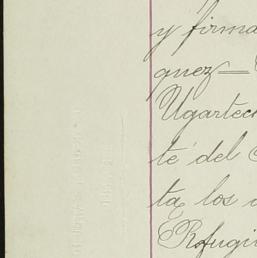 y firma
quez —
Ugartec
te del
ta, los
Refugi